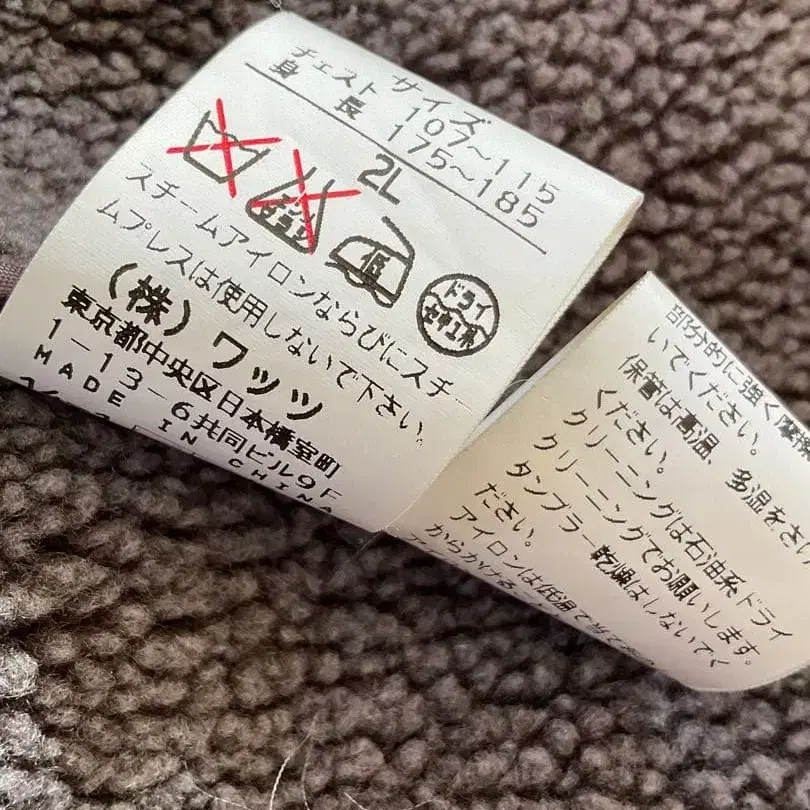 サイズ
チェスト 107~115
身 長 175~185
2L
エンソ
サラシ
低
ドライ
セキユ系
スチームアイロンならびにスチー
ムプレスは使用しないで下さい。
(株)ワッツ
東京都中央区日本橋室町
1-13-6共同ビル9F
MADE IN CHINA
部分的に強く摩擦
いでください。
保管は高温、多湿をさけ
ください。
クリーニングは石油系ドライ
クリーニングでお願いします。
タンブラー乾燥はしないでく
ださい。
アイロンは低温で当て